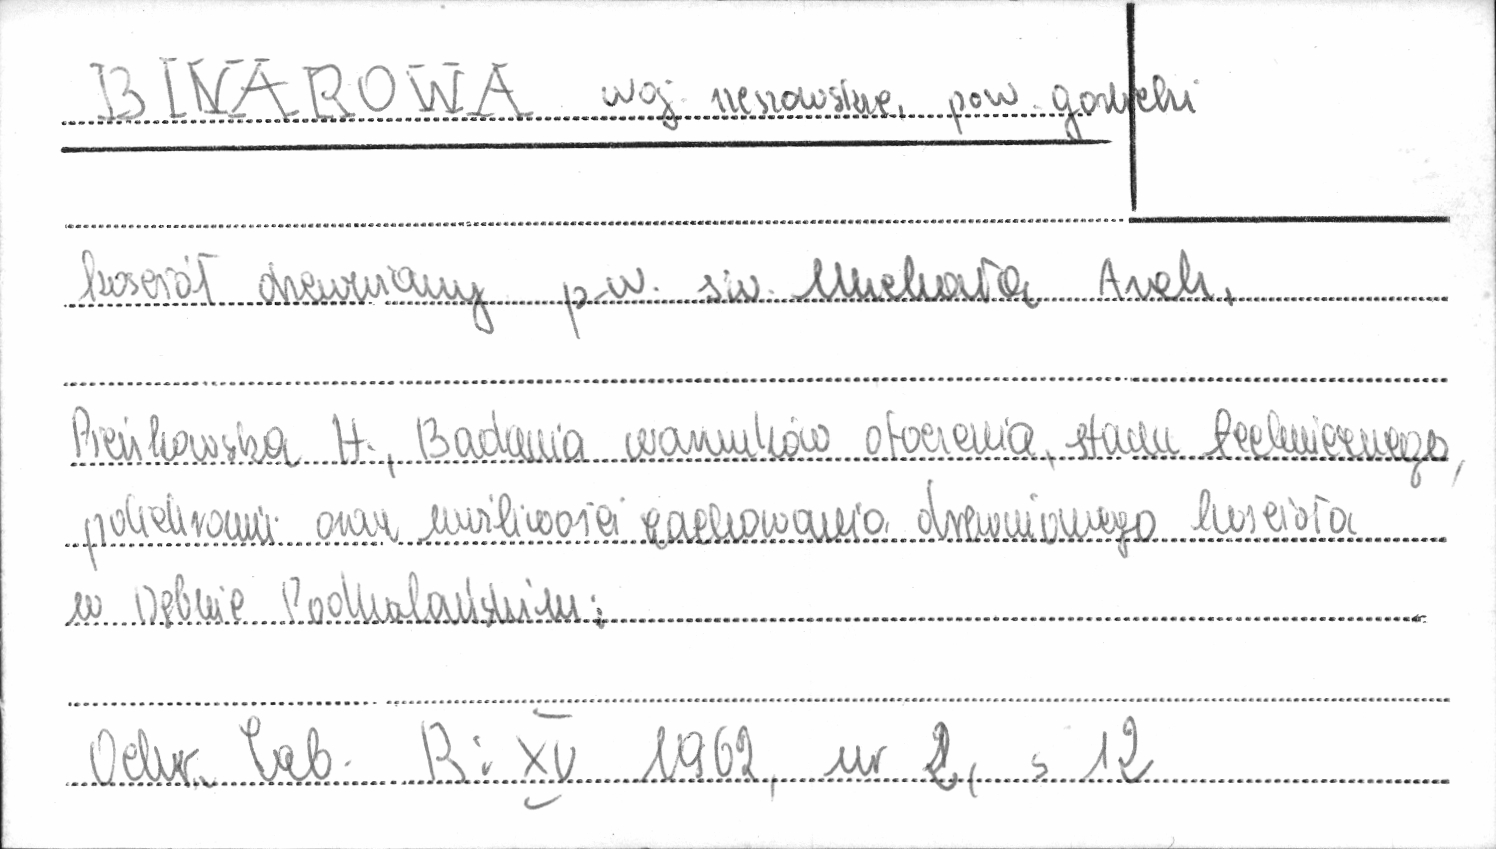 BINAROWA woj. rzeszowskie, pow. gorlicki
kościół drewniany p.w. św. Michała Arch.
Pieńkowska H., Badania warunków otoczenia, stanu technicznego,
polichromii oraz możliwości zachowania drewnianego kościoła
w Dębnie Podhalańskim;
Ochr. Zab. R: XV 1962, nr 2, s 12